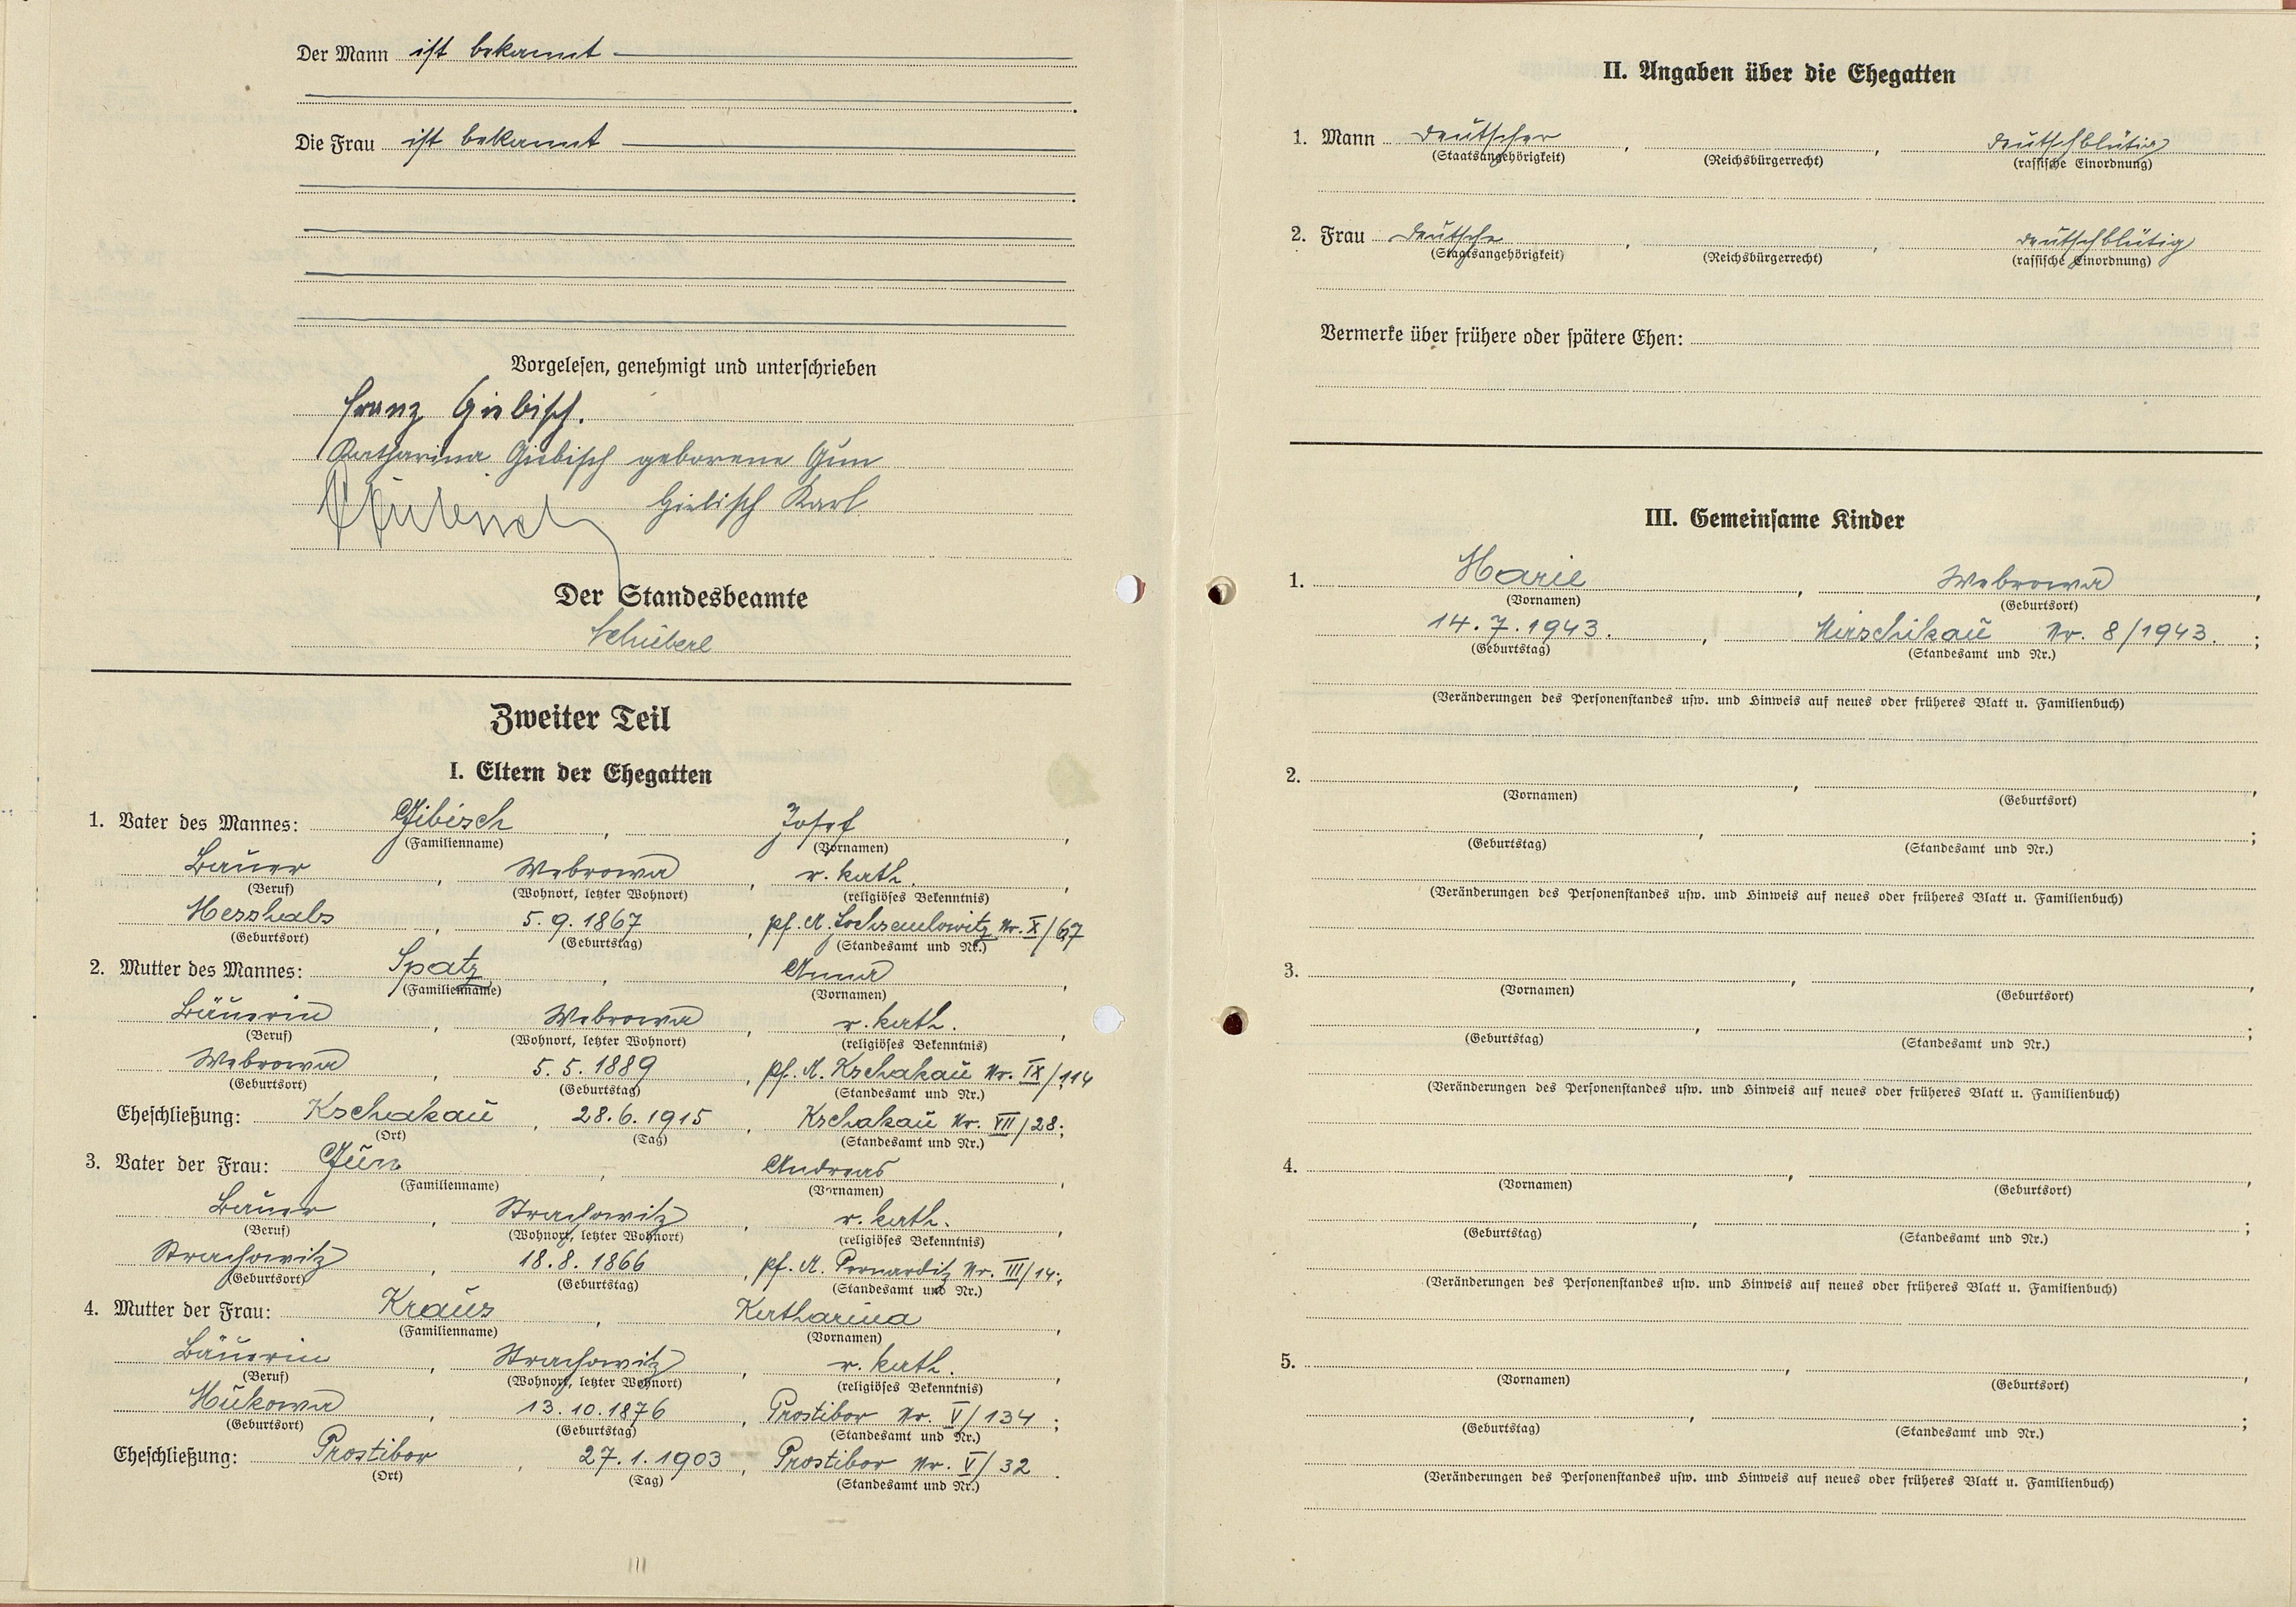 Der Mann ist bekannt
Die Frau ist bekannt
Vorgelesen, genehmigt und unterschrieben
Franz Giebisch.
Katharina Giebisch geborene Gün
Giebisch Karl
Der Standesbeamte
Schieberl
Zweiter Teil
I. Eltern der Ehegatten
1. Vater des Mannes: Gibisch, Josef,
(Familienname) (Vornamen)
Bauer, Webrowa, r. kath.,
(Beruf) (Wohnort, letzter Wohnort) (religiöses Bekenntnis)
5.9.1867, Pf. A. Nr. X/67
(Geburtsort) (Geburtstag) (Standesamt und Nr.)
2. Mutter des Mannes: Spatz, Anna,
(Familienname) (Vornamen)
Bäuerin, Webrowa, r. kath.,
(Beruf) (Wohnort, letzter Wohnort) (religiöses Bekenntnis)
Webrowa, 5.5.1889, Pf. A. Kschakau Nr. IX/114
(Geburtsort) (Geburtstag) (Standesamt und Nr.)
Eheschließung: Kschakau, 28.6.1915, Kschakau Nr. VII/28;
(Ort) (Tag) (Standesamt und Nr.)
3. Vater der Frau: Gün, Andreas,
(Familienname) (Vornamen)
Bauer, Strachowitz, r. kath.,
(Beruf) (Wohnort, letzter Wohnort) (religiöses Bekenntnis)
Strachowitz, 18.8.1866, Pf. A. Pernarditz Nr. III/14;
(Geburtsort) (Geburtstag) (Standesamt und Nr.)
4. Mutter der Frau: Kraus, Katharina,
(Familienname) (Vornamen)
Bäuerin, Strachowitz, r. kath.,
(Beruf) (Wohnort, letzter Wohnort) (religiöses Bekenntnis)
Hukowa, 13.10.1876, Prostibor Nr. V/134;
(Geburtsort) (Geburtstag) (Standesamt und Nr.)
Eheschließung: Prostibor, 27.1.1903, Prostibor Nr. V/32.
(Ort) (Tag) (Standesamt und Nr.)
II. Angaben über die Ehegatten
1. Mann deutscher, , deutschblütig
(Staatsangehörigkeit) (Reichsbürgerrecht) (rassische Einordnung)
2. Frau deutsche, , deutschblütig
(Staatsangehörigkeit) (Reichsbürgerrecht) (rassische Einordnung)
Vermerke über frühere oder spätere Ehen:
III. Gemeinsame Kinder
1. Marie, Webrowa,
(Vornamen) (Geburtsort)
14.7.1943., Mirschikau Nr. 8/1943.;
(Geburtstag) (Standesamt und Nr.)
(Veränderungen des Personenstandes usw. und Hinweis auf neues oder früheres Blatt u. Familienbuch)
2. , ,
(Vornamen) (Geburtsort)
, ;
(Geburtstag) (Standesamt und Nr.)
(Veränderungen des Personenstandes usw. und Hinweis auf neues oder früheres Blatt u. Familienbuch)
3. , ,
(Vornamen) (Geburtsort)
, ;
(Geburtstag) (Standesamt und Nr.)
(Veränderungen des Personenstandes usw. und Hinweis auf neues oder früheres Blatt u. Familienbuch)
4. , ,
(Vornamen) (Geburtsort)
, ;
(Geburtstag) (Standesamt und Nr.)
(Veränderungen des Personenstandes usw. und Hinweis auf neues oder früheres Blatt u. Familienbuch)
5. , ,
(Vornamen) (Geburtsort)
, ;
(Geburtstag) (Standesamt und Nr.)
(Veränderungen des Personenstandes usw. und Hinweis auf neues oder früheres Blatt u. Familienbuch)